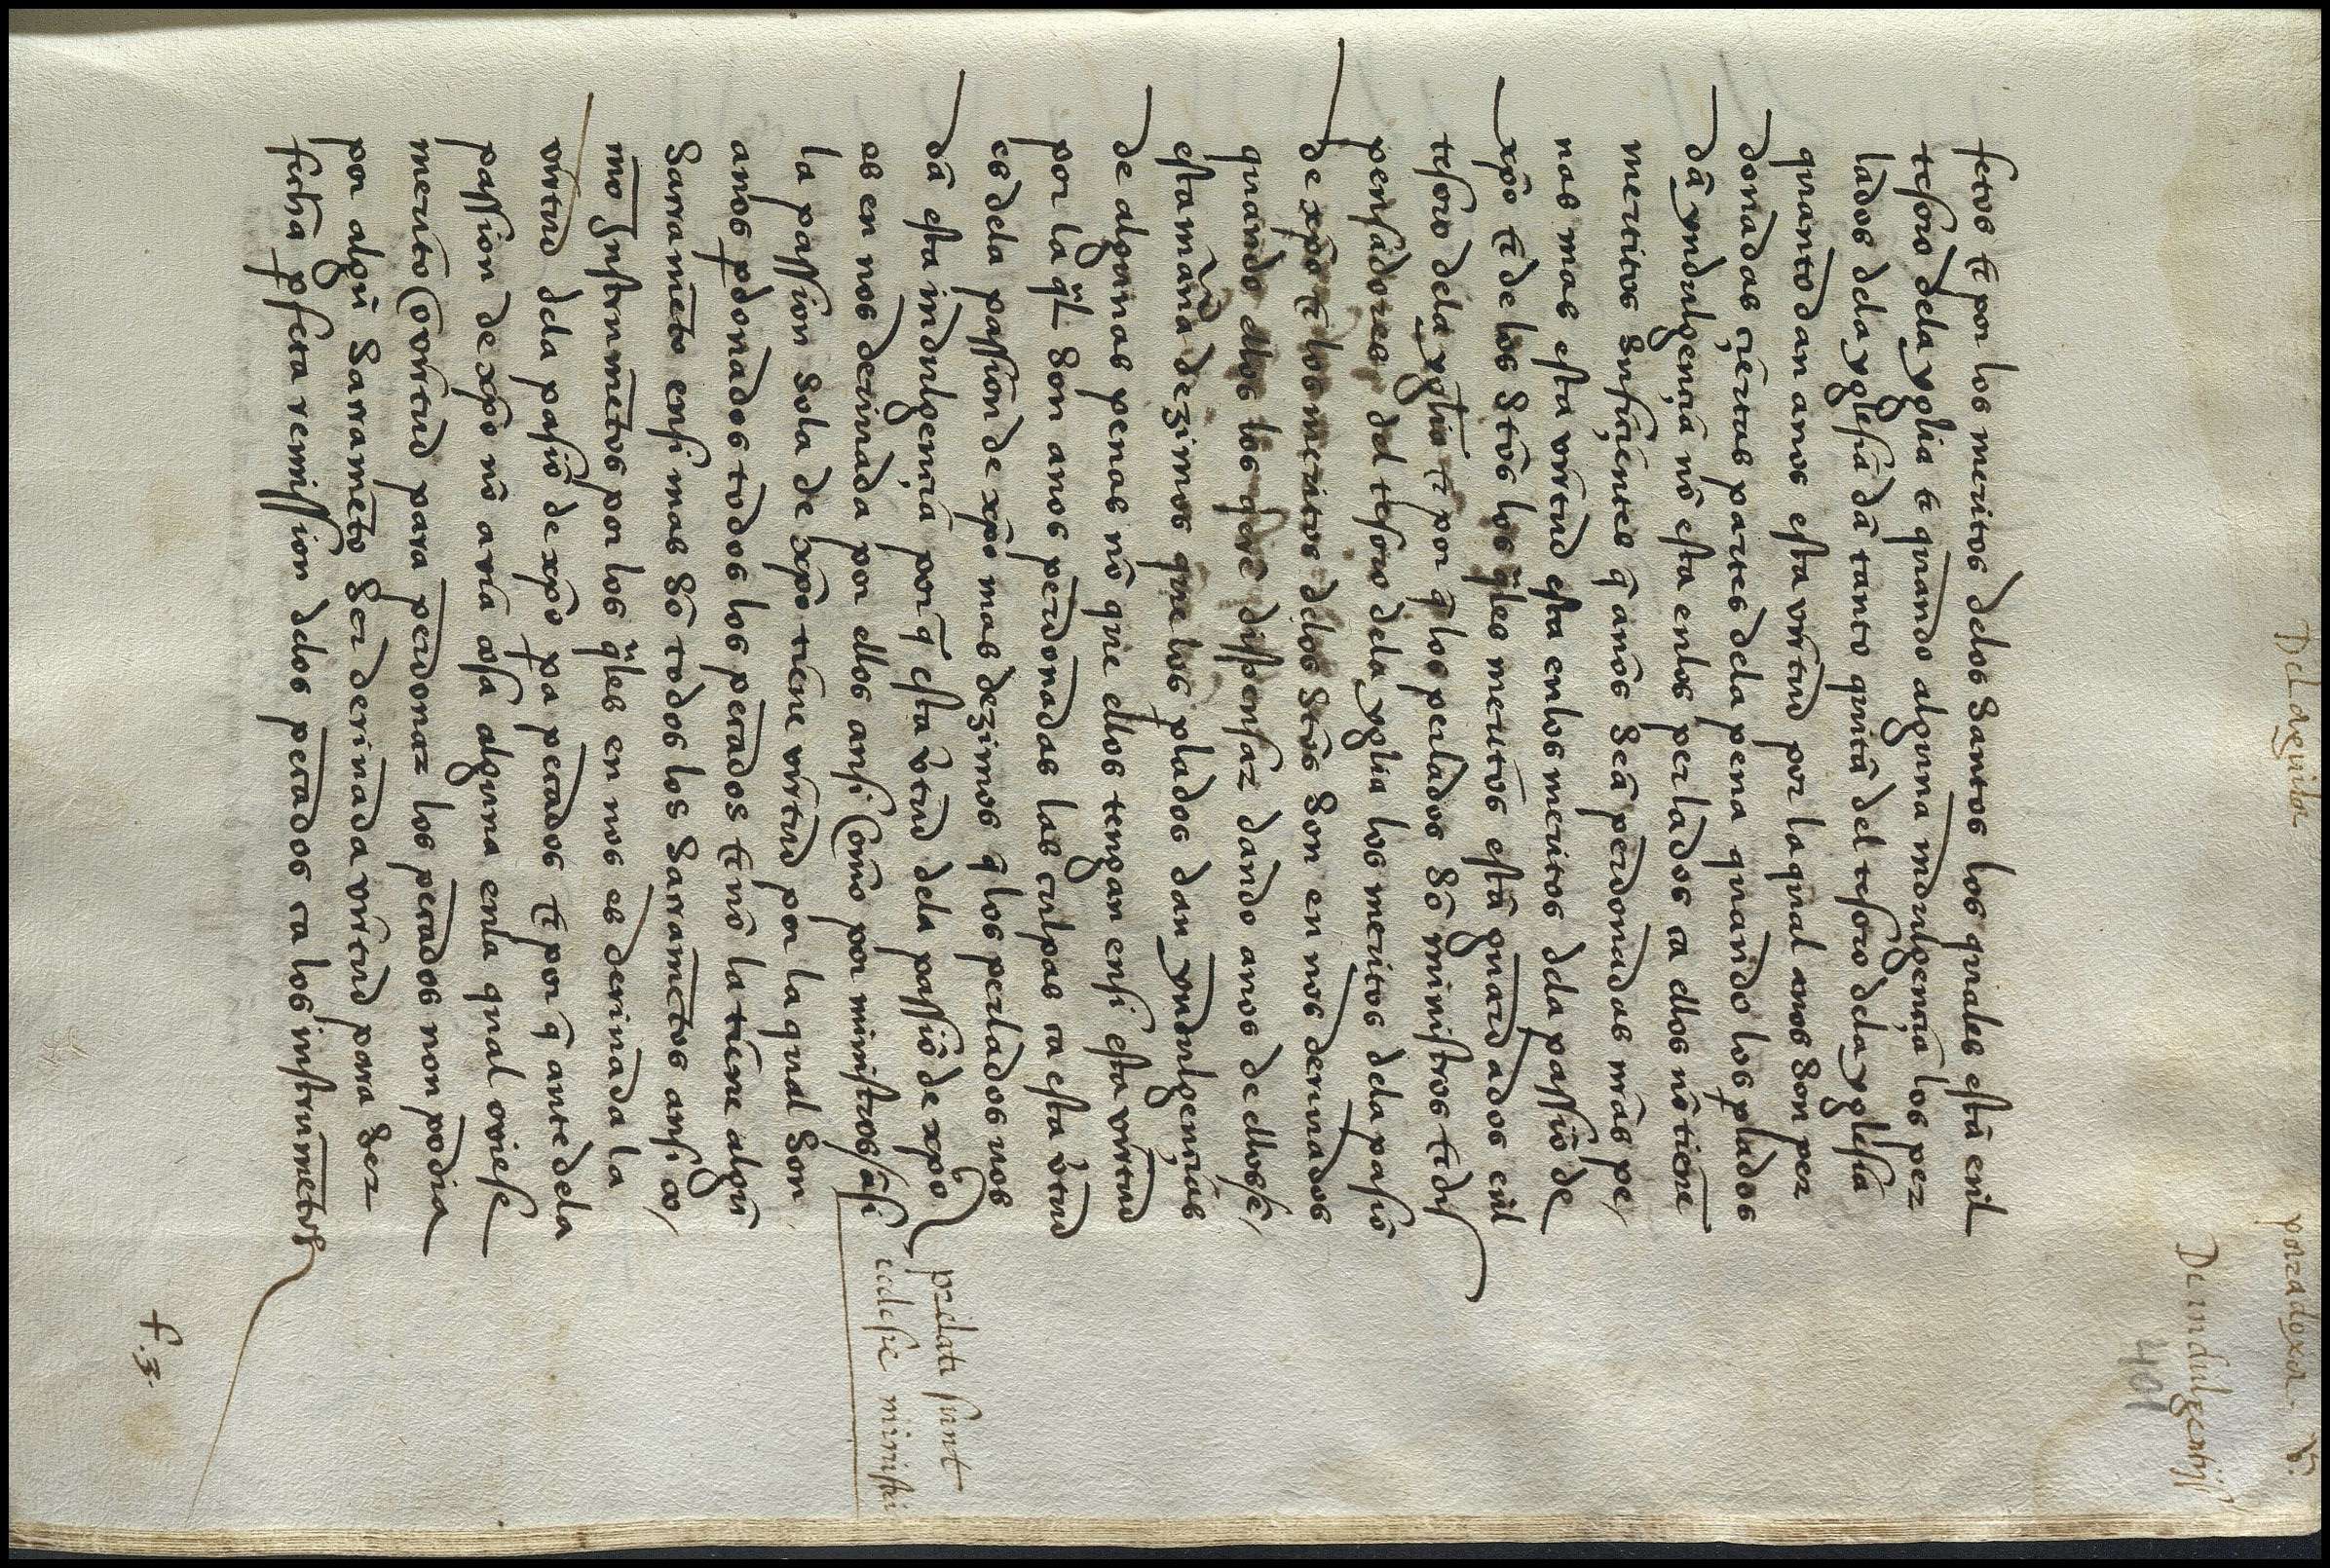 Del aguitar paradoxa. V.
De indulgentijs
401
fetos τ por los meritos delos santos los quales estā enl
tesoro dela yglīa τ quando alguna indulgençia los per
lados dela yglesia dā tanto quitā del tesoro dela yglesia
quanto dan a nos esta virtud por la qual a nos son per
donadas çiertas partes dela pena quando los plados
dā yndulgençia nō esta enlos perlados ca ellos nō tiene
meritos sufiçientes q̄ a nos seā perdonadas nr̄as pe
nas mas esta virtud esta enlos meritos dela passiō de
xp̄o τ de los stōs los q̄les meritos estā guardados enl
tesoro dela yglīa τ por q̄ los perlados sō ministros τ dis
pensadores del tesoro dela yglīa los meritos dela pasiō
de xp̄o τ los meritos delos stōs son en nos deriuados
quando ellos los q̄erē dispensar dando a nos de ellos τ
esta manā dezimos que los plados dan yndulgençias
de algunas penas nō que ellos tengan en si esta virtud
por la q̄l son a nos perdonadas las culpas ca esta v̄tud
es dela passion de xp̄o mas dezimos q̄ los perlados nos
dā esta indulgençia por q̄ esta v̄tud dela passiō de xp̄o
es en nos deriuada por ellos ansi como por ministros / asi
prelati sunt
ecclesie ministri
la passion sola de xp̄o tiene virtud por la qual son
a nos pdonados todos los pecados τ nō la tiene algū
sacramēto en si mas sō todos los sacramētos ansi co
mo Instrumētos por los q̄les en nos es deriuada la
virtud dela pasiō de xp̄o pa pecados τ por q̄ ante dela
passion de xp̄o nō auia cosa alguna enla qual ouiese
merito o virtud para perdonar los pecados non podia
por algū sacramēto ser deriuada virtud para ser
fecha pfecta remission delos pecados ca los instrumētos
f. 3.